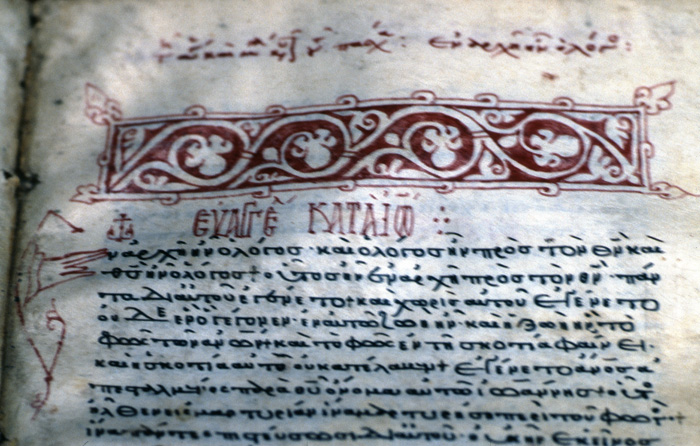 ἐν ἀρχῆ ἦν ὁ λόγος:
ΕΥΑΓΓΕ ΚΑΤΑ ΙΩ
Ἐν ἀρχῆ ἦν ὁ λόγος· καὶ ὁ λόγος ἦν πρὸς τὸν θν καὶ
θς ἦν ὁ λόγος+ οὗτος ἦν ἐν ἀρχῆ πρὸς τὸν θν· πάν
τα δι αὐτοῦ ἐγένετο+ καὶ χωρὶς αὐτοῦ ἐγένετο
οὐδὲ ἓν ὃ γέγονεν· ἐν αὐτῶ ζωὴ ἦν· καὶ ἡ ζωὴ ἦν τὸ
φῶς τῶν ἀνων+ καὶ τὸ φῶς ἐν τῆ σκοτία φαίνει·
καὶ ἡ σκοτία αὐτὸ οὐ κατέλαβεν+ ἐγένετο ἄνος ἀ
πεσταλμένος παρὰ θυ ὄνομα αὐτῶ ἰωάννης+ οὗτος
ἦλθεν εἰς μαρτυρίαν ἵνα μαρτυρήση περὶ τοῦ φωτός+
ἵνα πάντες πιστεύσωσι δι αὐτοῦ· οὐκ ἦν ἐκεῖνος